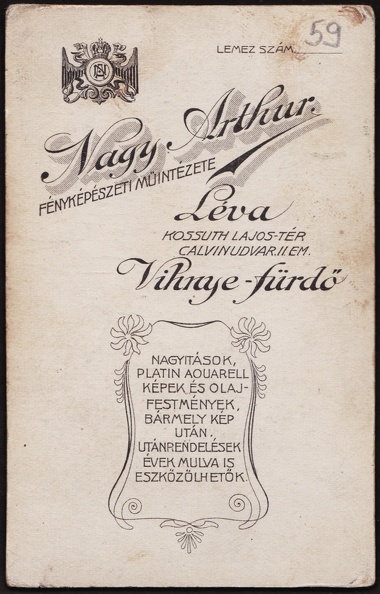 LEMEZ SZÁM 59
Nagy Arthur.
FÉNYKÉPÉSZETI MŰINTÉZETE
Léva
KOSSUTH LAJOS-TÉR
CALVINUDVAR.II.EM.
Vihnye-fürdő
NAGYITÁSOK,
PLATIN AQUARELL
KÉPEK ÉS OLAJ-
FESTMÉNYEK,
BÁRMELY KÉP
UTÁN.
UTÁNRENDELÉSEK
ÉVEK MULVA IS
ESZKÖZÖLHETŐK.